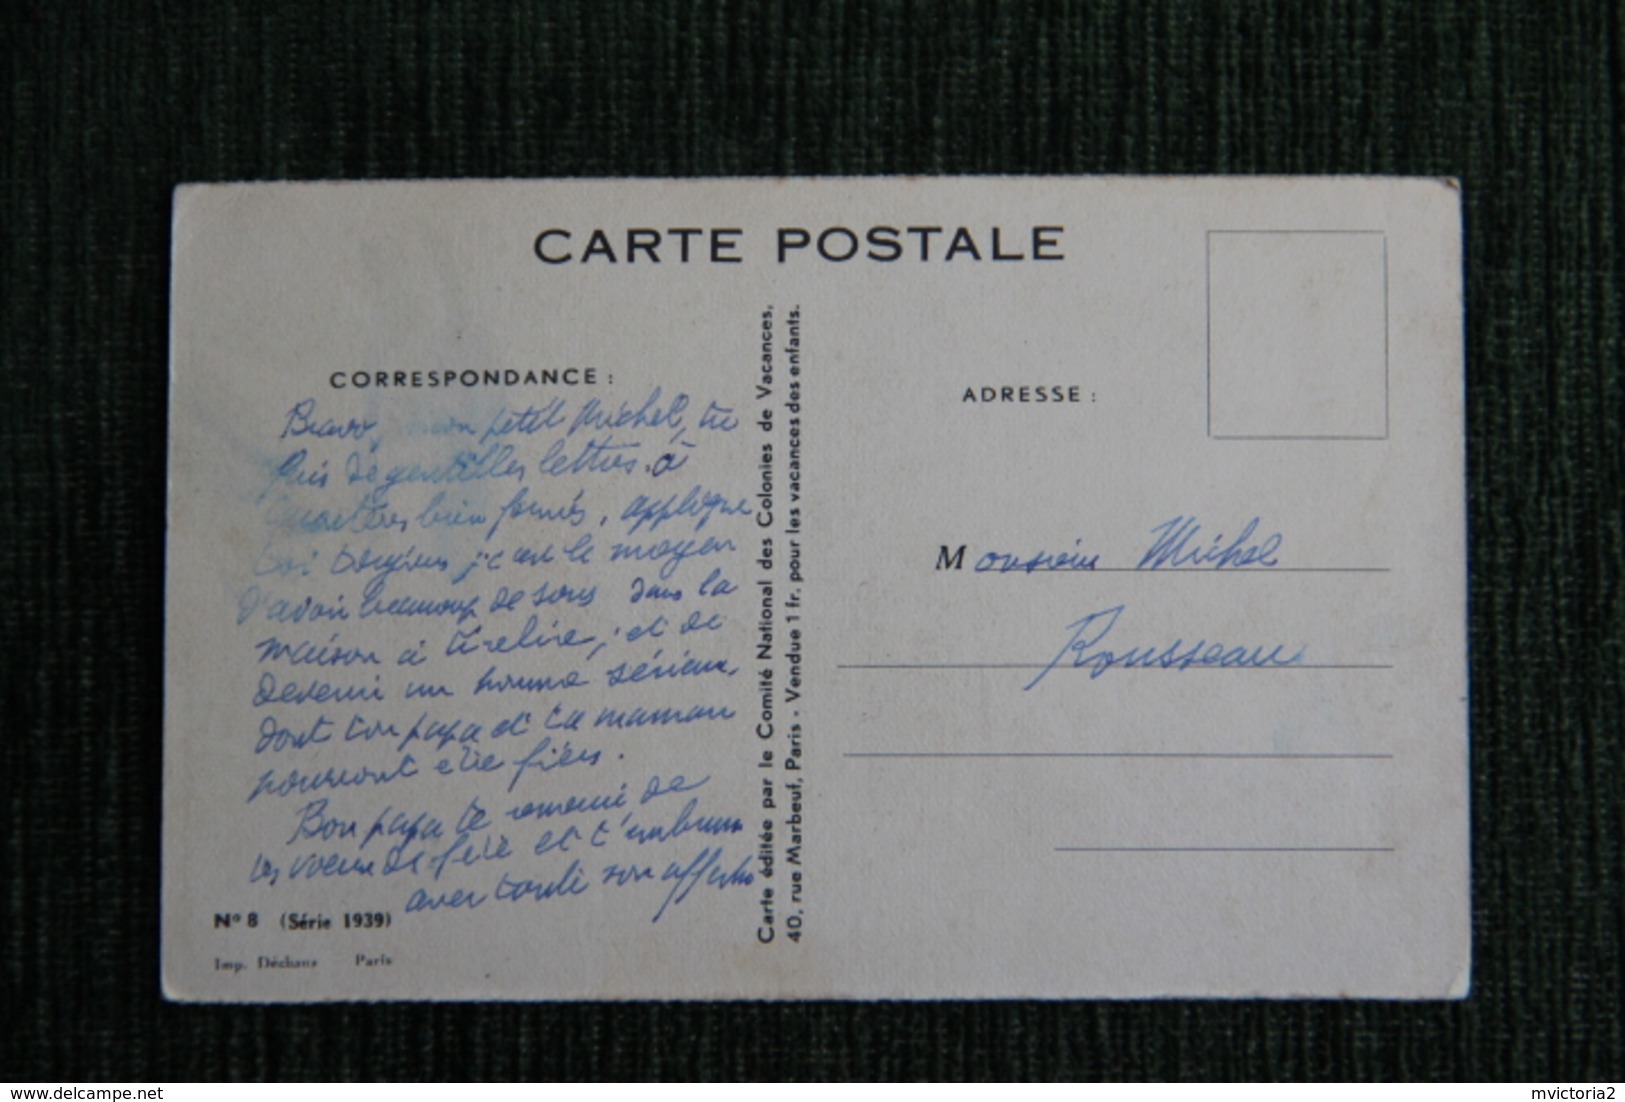 CARTE POSTALE
CORRESPONDANCE :
Bravo, mon petit Michel, tu
fais de gentilles lettres. à
caractères bien formés, applique
toi toujours, c'est le moyen
d'avoir beaucoup de sous dans la
maison à tirelire, et de
devenir un homme sérieux,
dont ton papa et ta maman
pourront être fiers.
Bon papa te remercie de
tes voeux de fête et t'embrasse
avec toute son affection
Nº 8 (Série 1939)
Imp. Déchaux Paris
Carte éditée par le Comité National des Colonies de Vacances,
40, rue Marbeuf, Paris - Vendue 1 fr. pour les vacances des enfants.
ADRESSE :
Monsieur Michel
Rousseau
mvictoria2